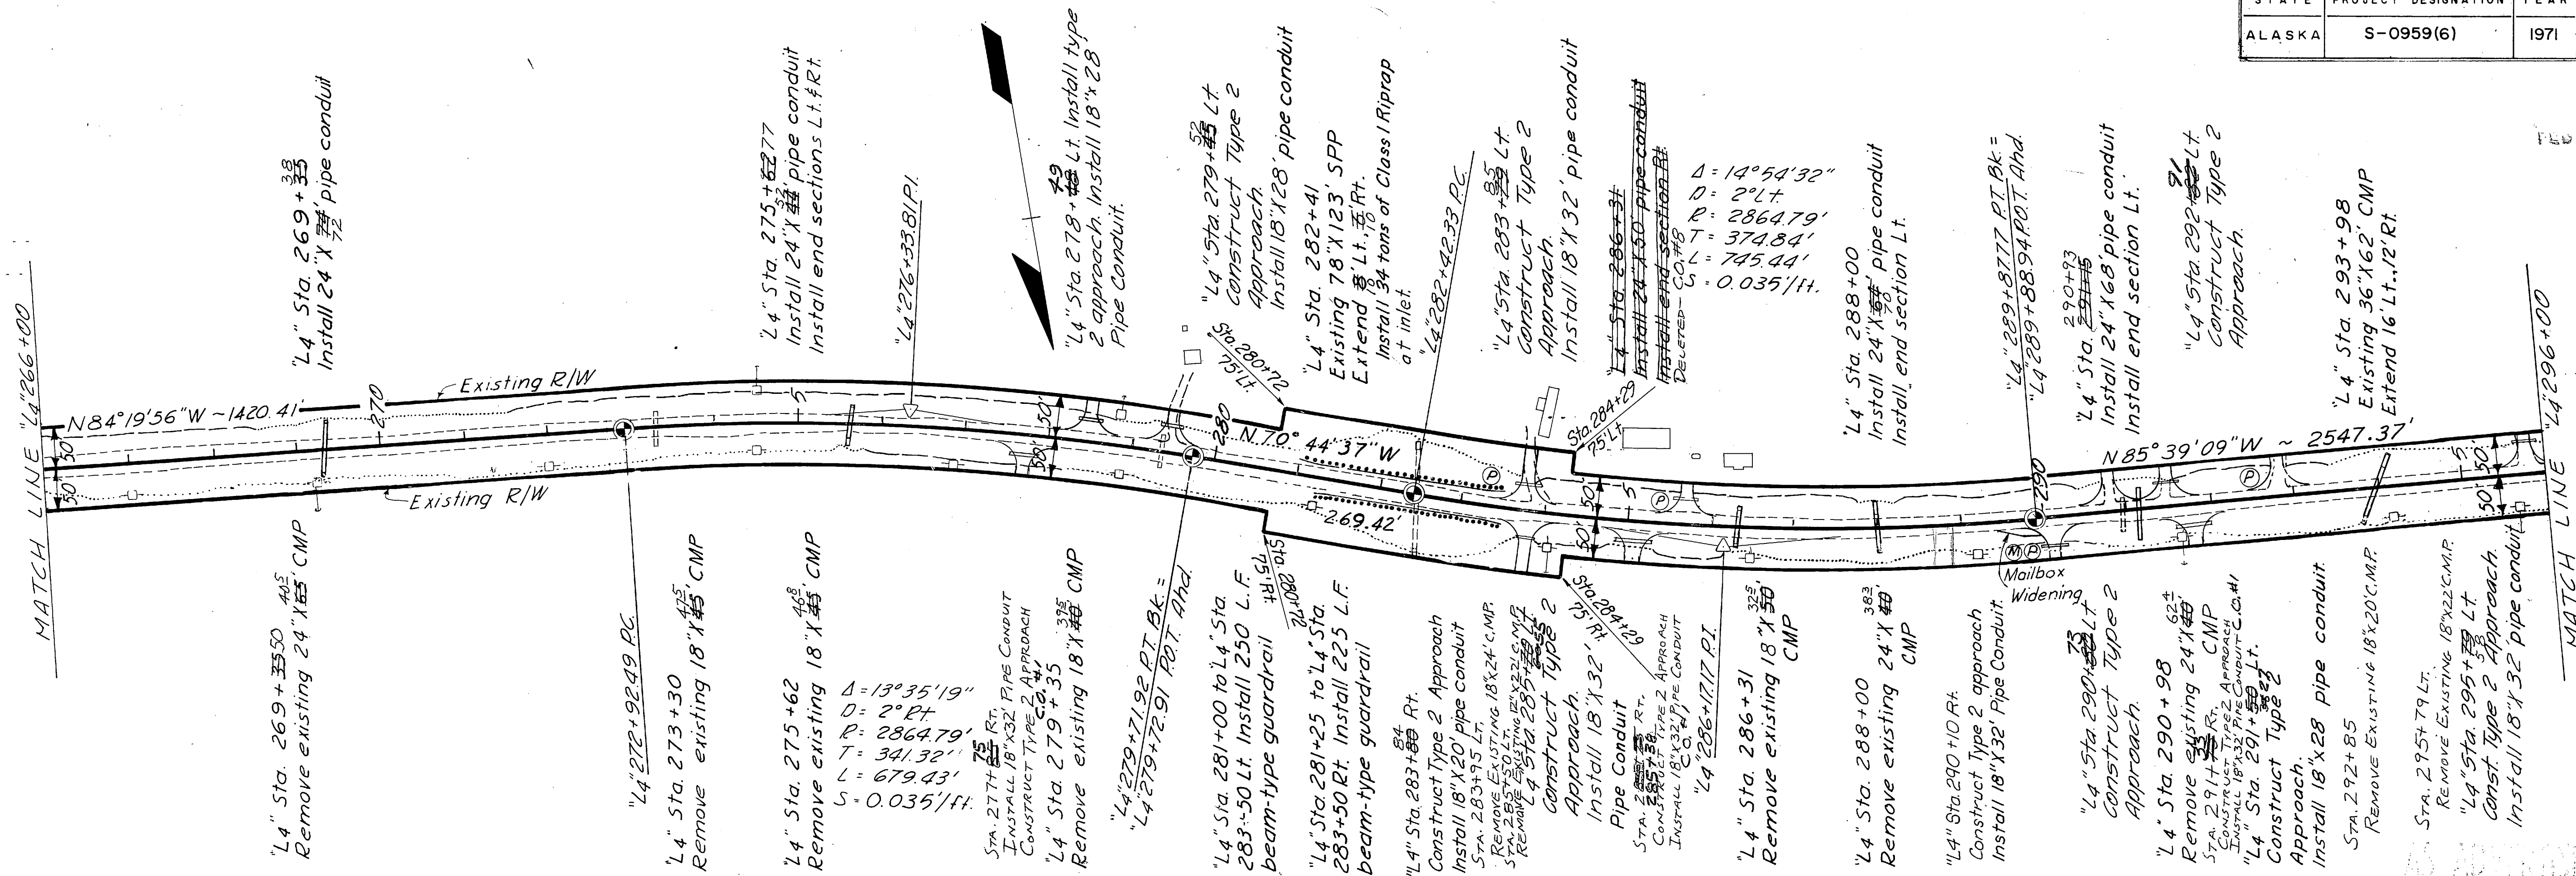 STATE PROJECT DESIGNATION YEAR
ALASKA S-0959(6) 1971
"L4" Sta. 269+35 38
Install 24"X 74' pipe conduit
72
"L4" Sta. 275+62 77
Install 24"X 44' pipe conduit
52
Install end sections Lt. & Rt.
"L4" 276+33.81 P.I.
49
"L4" Sta. 278+48 Lt. Install type
2 approach. Install 18"x 28'
Pipe Conduit.
52
"L4" Sta. 279+45 Lt.
Construct Type 2
Approach.
Install 18"X28' pipe conduit
"L4" Sta. 282+41
Existing 78"X123' SPP
Extend 8' Lt., Rt.
10 10
Install 34 tons of Class I Riprap
at inlet.
"L4" 282+42.33 P.C.
85
"L4" Sta. 283+79 Lt.
Construct Type 2
Approach.
Install 18"X32' pipe conduit
"L4" Sta. 286+31
Install 24"X50' pipe conduit
Install end section Rt.
DELETED - C.O. #8
Δ = 14°54'32"
D = 2° Lt.
R = 2864.79'
T = 374.84'
L = 745.44'
S = 0.035'/ft.
"L4" Sta. 288+00
Install 24"X 64' pipe conduit
70
Install end section Lt.
"L4" 289+87.77 P.T. Bk.=
"L4" 289+88.94 P.O.T. Ahd.
290+93
"L4" Sta. 291+15
Install 24"X68' pipe conduit
Install end section Lt.
91
"L4" Sta. 292+ Lt.
Construct Type 2
Approach.
"L4" Sta. 293+98
Existing 36"X62' CMP
Extend 16' Lt., 12' Rt.
MATCH LINE "L4" 266+00
50'
50'
N84°19'56"W ~1420.41'
270
Existing R/W
Existing R/W
5
50'
50'
280
Sta. 280+72
75' Lt.
N.70° 44'37"W
269.42'
Sta. 280+72
75' Rt.
P
Sta. 284+29
75' Lt.
Sta. 284+29
75' Rt.
50'
50'
5
P
290
M P
Mailbox
Widening
N85°39'09"W ~ 2547.37'
P
5
50'
50'
MATCH LINE "L4" 296+00
"L4" Sta. 269+35 50
Remove existing 24"X 65' CMP
40.5
"L4" 272+92.49 P.C.
"L4" Sta. 273+30
Remove existing 18"X 45' CMP
47.5
"L4" Sta. 275+62
Remove existing 18"X 45' CMP
46.8
Δ = 13°35'19"
D = 2° Rt.
R = 2864.79'
T = 341.32'
L = 679.43'
S = 0.035'/ft.
75
STA. 277+ RT.
INSTALL 18"X32' PIPE CONDUIT
CONSTRUCT TYPE 2 APPROACH
C.O. #1
"L4" Sta. 279+35
Remove existing 18"X 40' CMP
39.5
"L4" 279+71.92 P.T. Bk.=
"L4" 279+72.91 P.O.T. Ahd.
"L4" Sta. 281+00 to "L4" Sta.
283+50 Lt. Install 250 L.F.
beam-type guardrail
"L4" Sta. 281+25 to "L4" Sta.
283+50 Rt. Install 225 L.F.
beam-type guardrail
84
"L4" Sta. 283+80 Rt.
Construct Type 2 Approach
Install 18"X20' pipe conduit
STA. 283+95 LT.
REMOVE EXISTING 18"X24' C.M.P.
STA. 285+50 LT.
REMOVE EXISTING 12"X22' C.M.P.
"L4" Sta. 285+ Lt.
Construct Type 2
Approach.
Install 18"X32'
Pipe Conduit
STA. 285+38 RT.
CONSTRUCT TYPE 2 APPROACH
INSTALL 18"X32' PIPE CONDUIT
C.O. #1
"L4" 286+17.17 P.I.
"L4" Sta. 286+31
Remove existing 18"X 50'
32.5
CMP
"L4" Sta. 288+00
Remove existing 24"X 40'
38.3
CMP
"L4" Sta. 290+10 Rt.
Construct Type 2 approach
Install 18"X32' Pipe Conduit.
73
"L4" Sta. 290+ Lt
Construct Type 2
Approach.
"L4" Sta. 290+98
Remove existing 24"X 40'
62.4
CMP
35
STA. 291+ RT.
CONSTRUCT TYPE 2 APPROACH
INSTALL 18"X32' PIPE CONDUIT C.O. #1
"L4" Sta. 291+50 Lt.
Construct Type 2
Approach.
Install 18"x28 pipe conduit.
STA. 292+85
REMOVE EXISTING 18"x20' C.M.P.
STA. 295+79 LT.
REMOVE EXISTING 18"X22' C.M.P.
"L4" Sta. 295+79 Lt
58
Const. Type 2 Approach.
Install 18"X32' pipe conduit
MATCH LINE